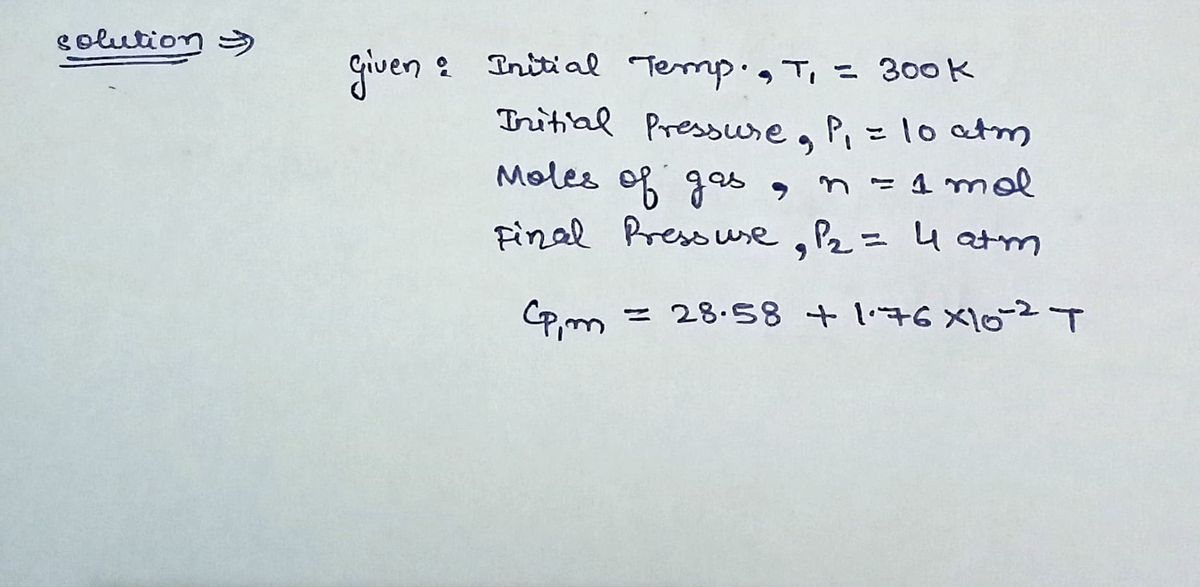 solution ⇒
Given : Initial Temp., T₁ = 300K
Initial Pressure, P₁ = 10 atm
Moles of gas, n = 1 mol
Final Pressure, P₂ = 4 atm
Cp,m = 28.58 + 1.76 ×10⁻² T